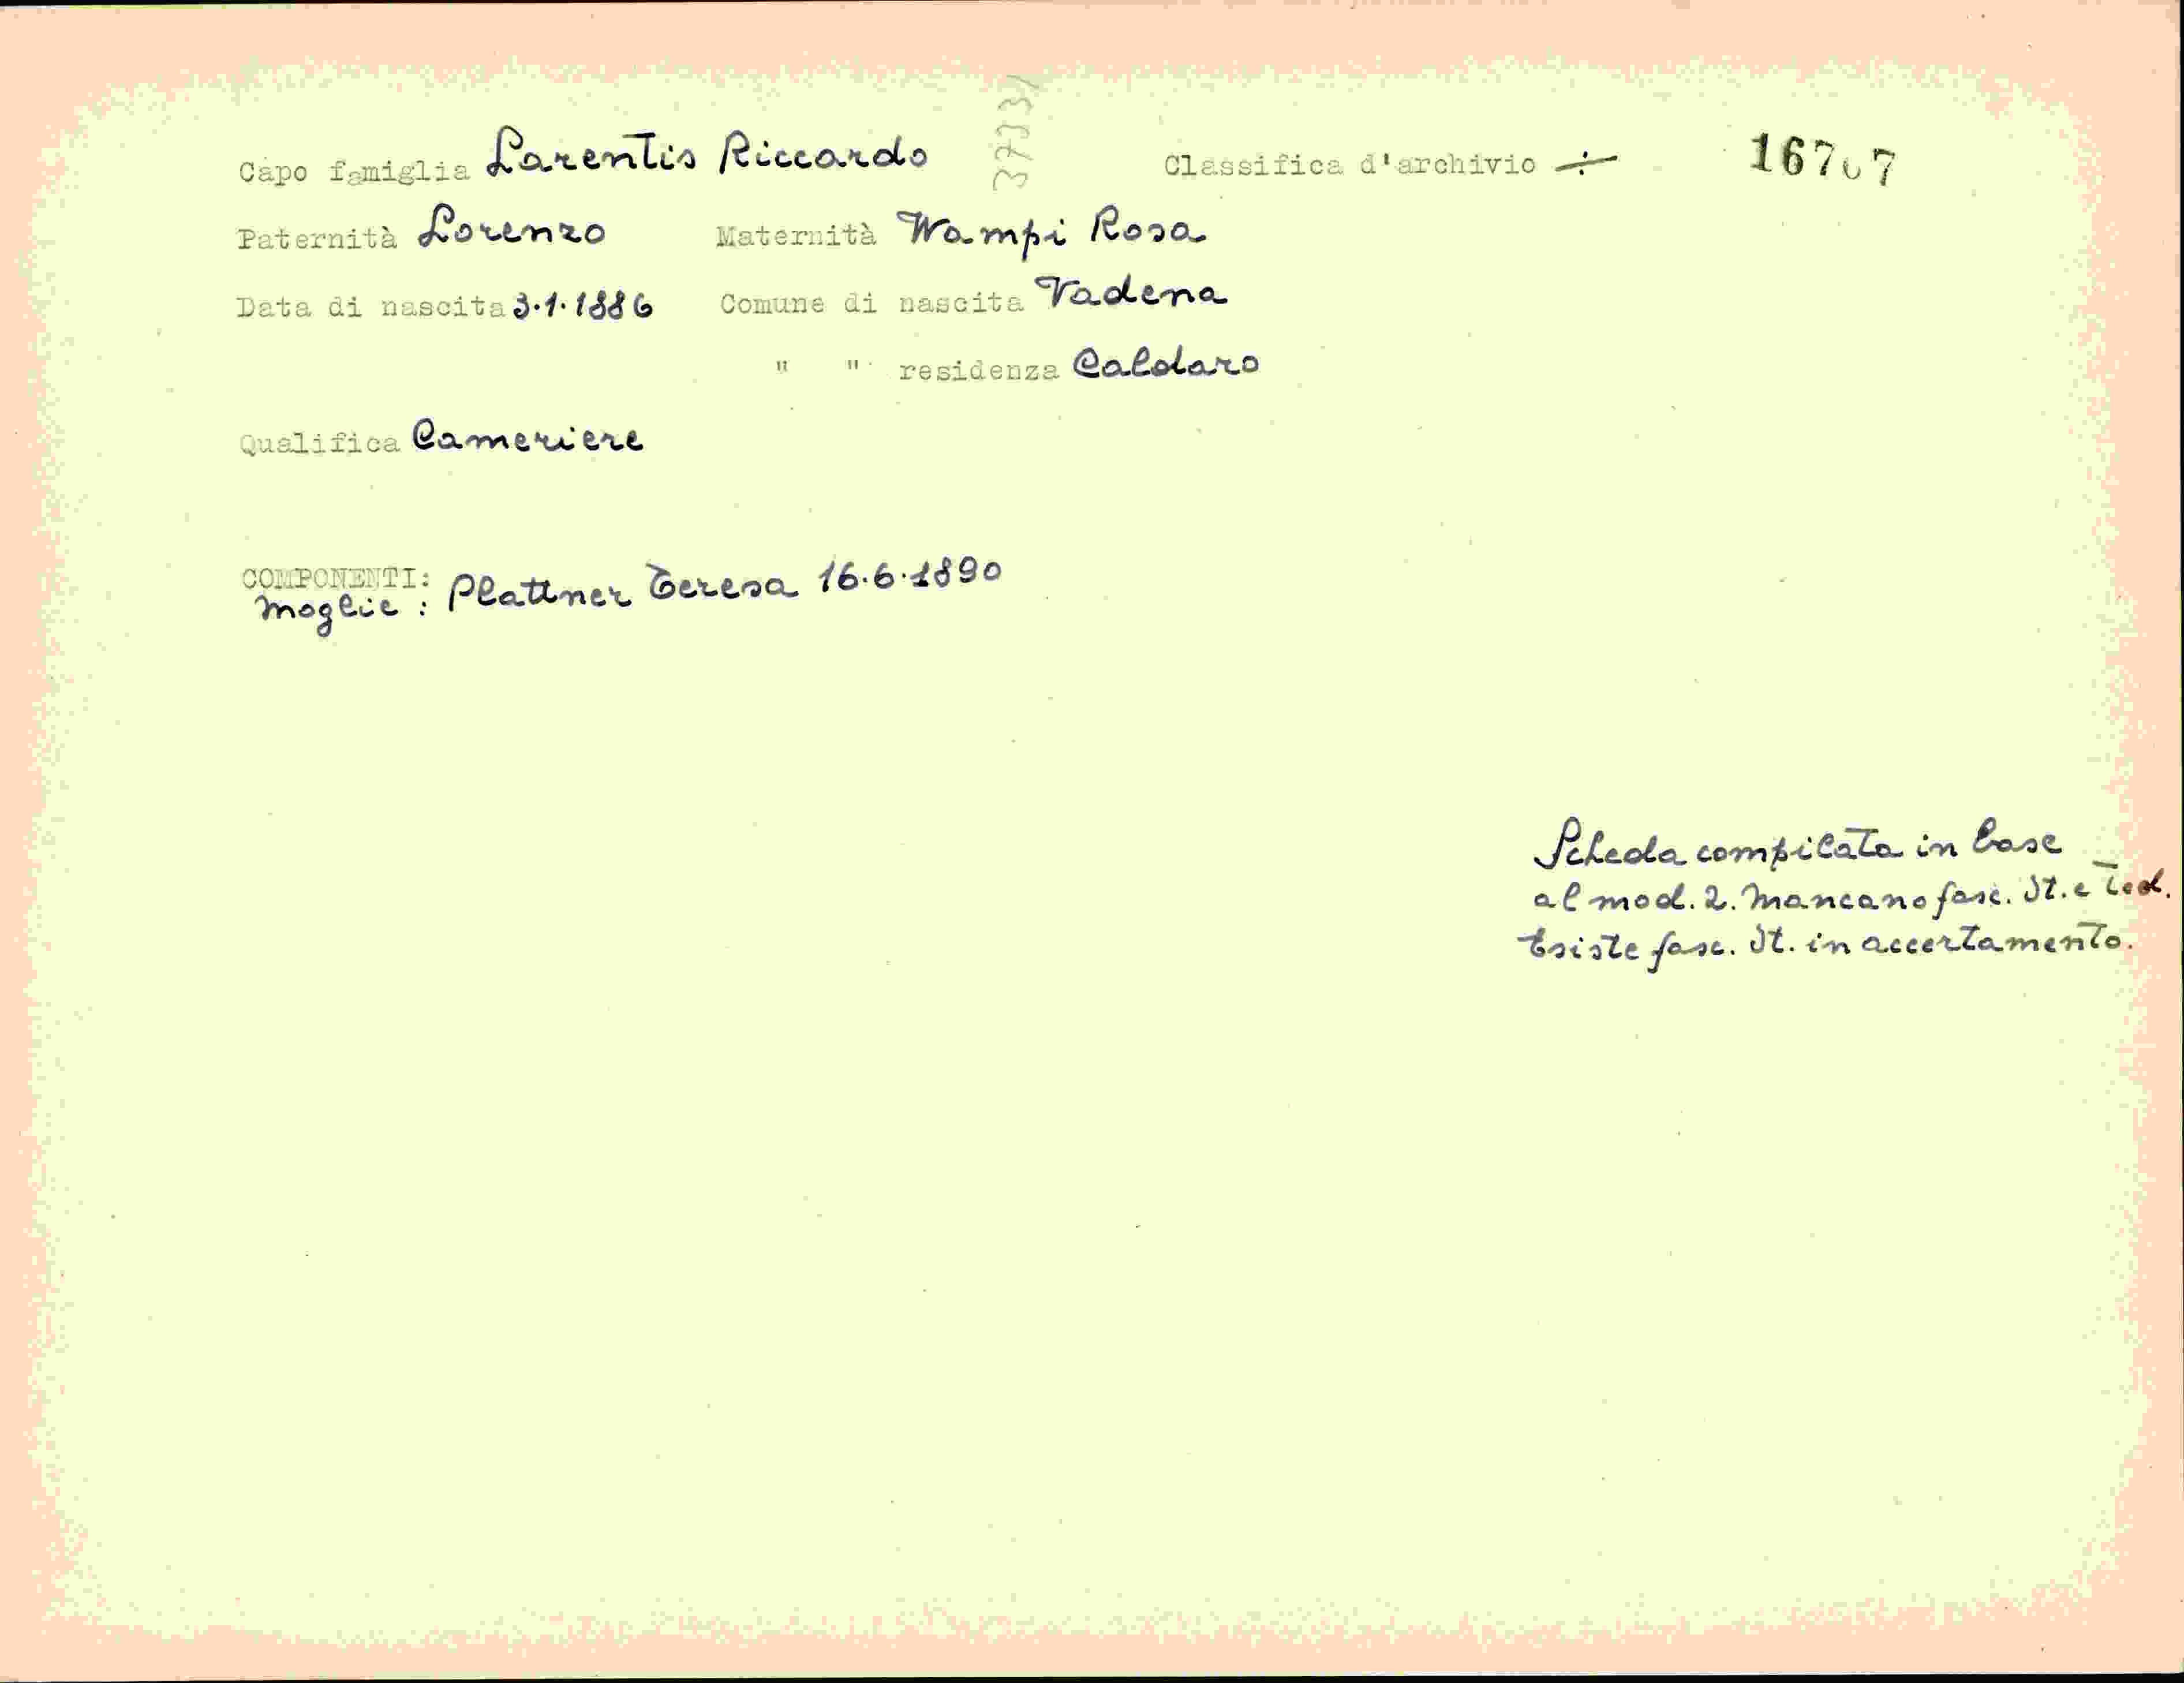 Capo famiglia Larentis Riccardo Classifica d'archivio ÷ 16707
Paternità Lorenzo Maternità Wampi Rosa
Data di nascita 3.1.1886 Comune di nascita Vadena
" " residenza Caldaro
Qualifica Cameriere
COMPONENTI:
Moglie : Plattner Teresa 16.6.1890
Scheda compilata in base
al mod. 2. Mancano fasc. It. e Ted.
Esiste fasc. It. in accertamento.